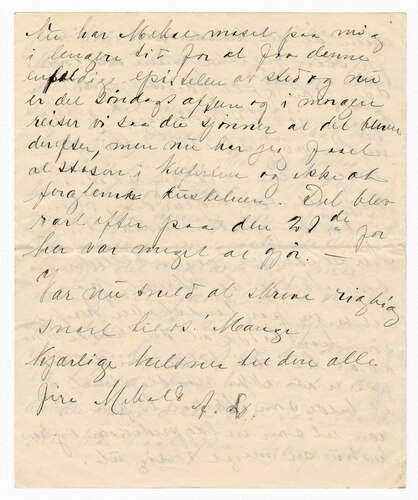 Nu har Mekal maset paa mig
i lengere tid for at faa denne
enfoldige epistelen av sted og nu
er det Söndags aften og i morgen
reiser vi saa du sjönner at det bliver
derefter, men nu har jeg faaet
al stasen i Kuferten og ikke at
forglemme duskeluen. Det blev
rart efter paa den 29de for
her var meget at gjör. —
Var nu snild at skrive rigtig
snart til os! Mange
Kjærlige hilsner til dere alle
fra Mekal & A.